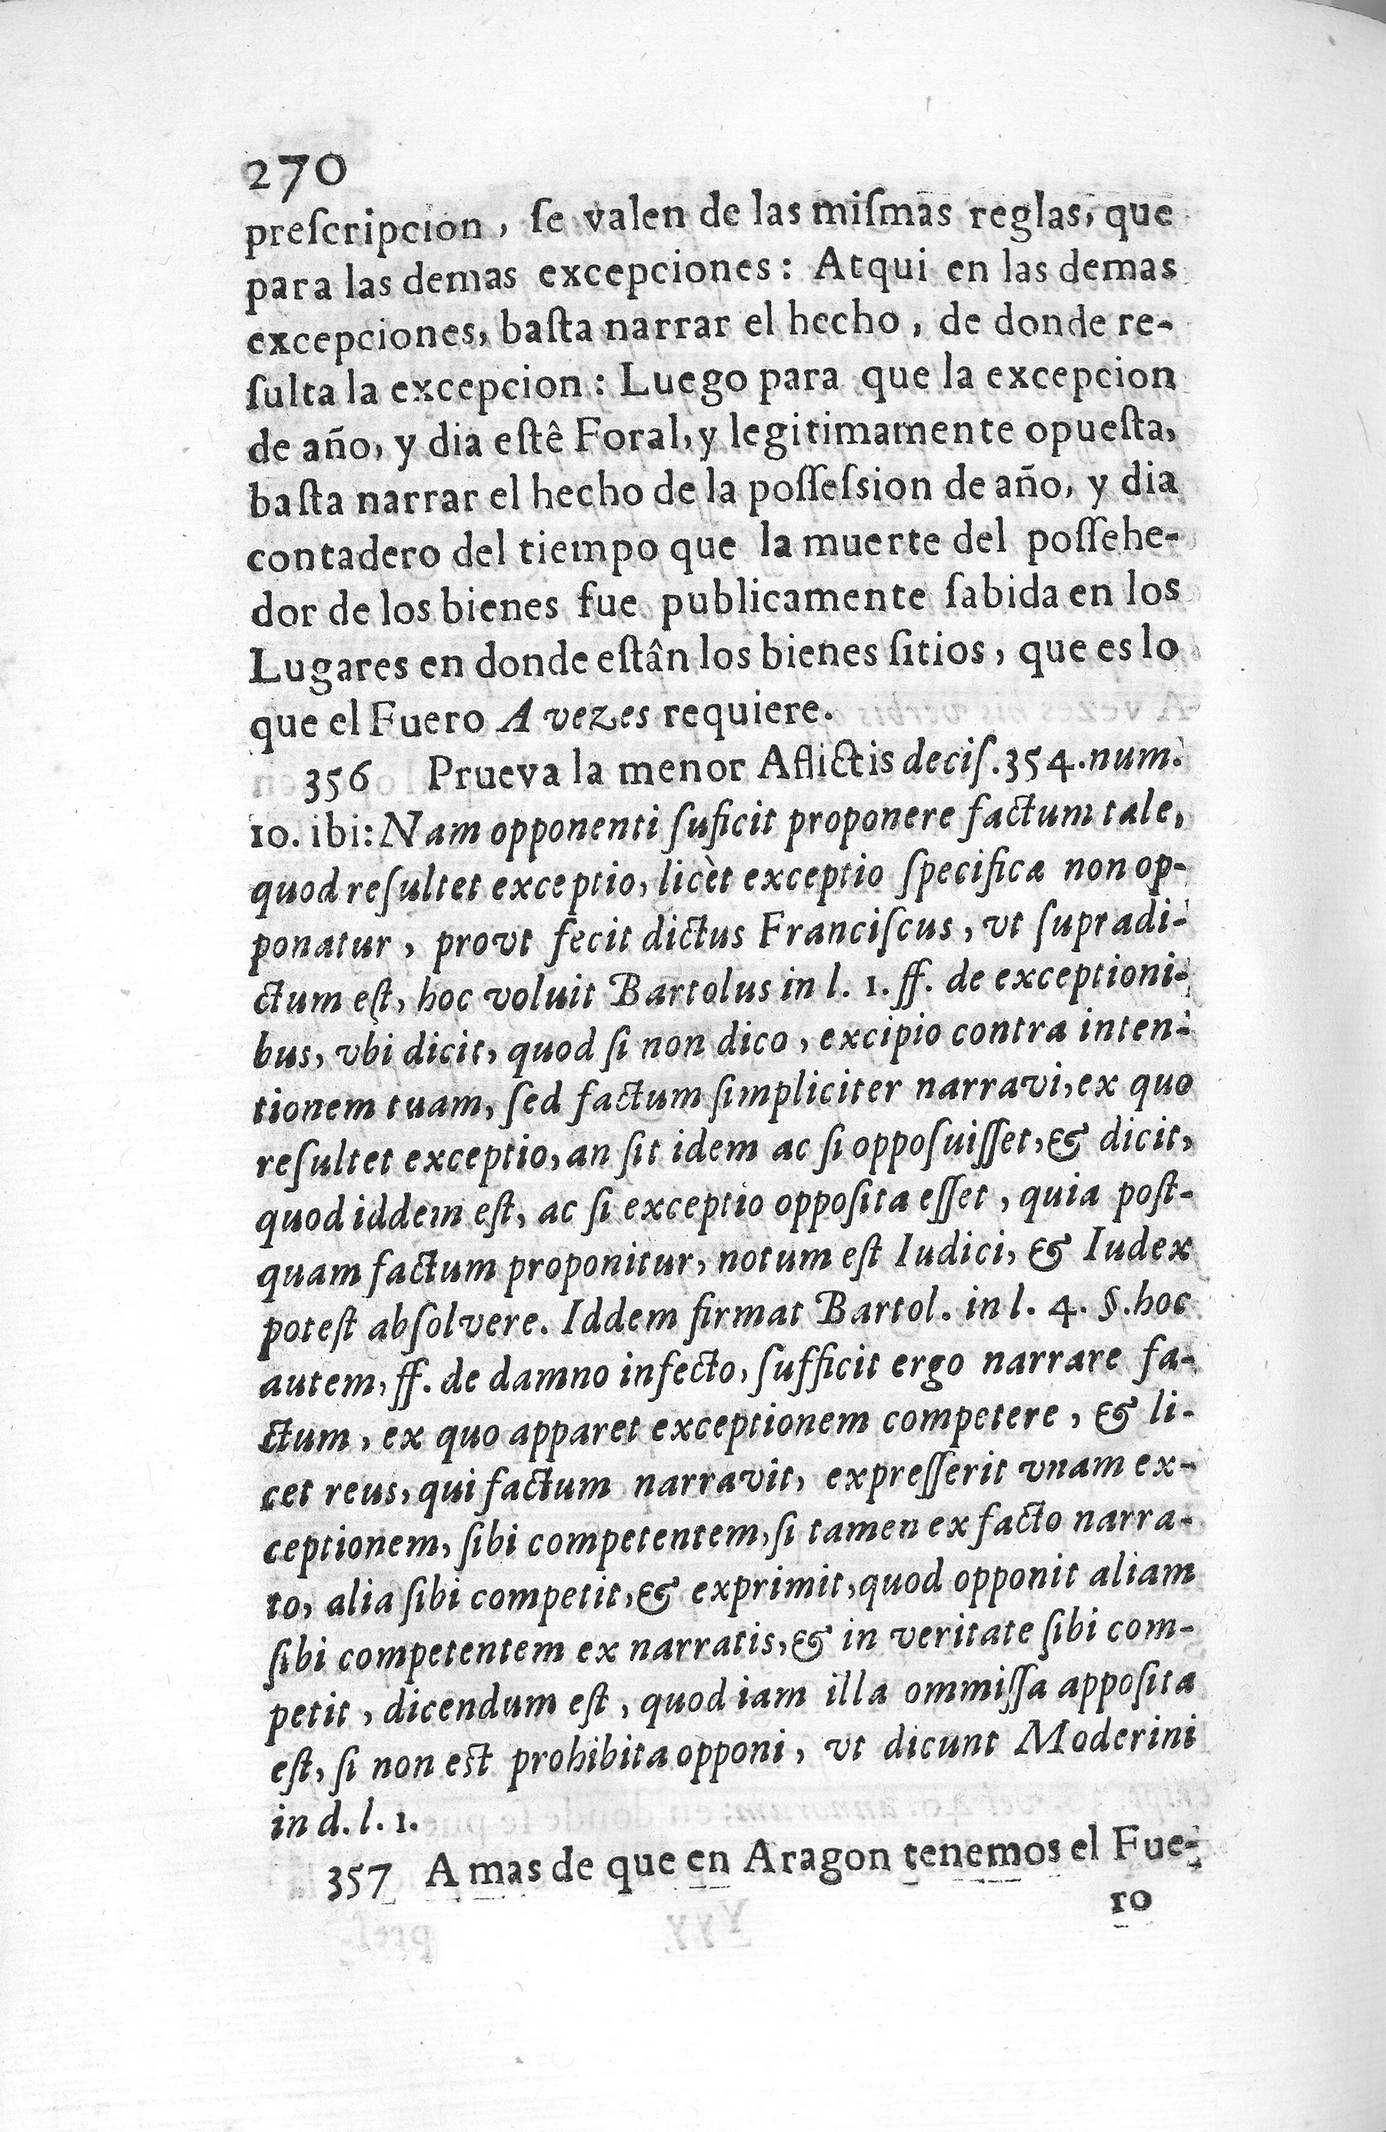 270
preſcripcion, ſe valen de las miſmas reglas, que
para las demas excepciones: Atqui en las demas
excepciones, baſta narrar el hecho, de donde re-
ſulta la excepcion: Luego para que la excepcion
de año, y dia eſtê Foral, y legitimamente opueſta,
baſta narrar el hecho de la poſſeſsion de año, y dia
contadero del tiempo que la muerte del poſſehe-
dor de los bienes fue publicamente ſabida en los
Lugares en donde eſtân los bienes ſitios, que es lo
que el Fuero A vezes requiere.
356 Prueva la menor Aflictis deciſ. 354. num.
10. ibi: Nam opponenti ſuficit proponere factum tale,
quod reſultet exceptio, licèt exceptio ſpecificæ non op-
ponatur, provt fecit dictus Franciſcus, vt ſupradi-
ctum eſt, hoc voluit Bartolus in l. 1. ff. de exceptioni-
bus, vbi dicit, quod ſi non dico, excipio contra inten-
tionem tuam, ſed factum ſimpliciter narravi, ex quo
reſultet exceptio, an ſit idem ac ſi oppoſuiſſet, & dicit,
quod iddem eſt, ac ſi exceptio oppoſita eſſet, quia poſt-
quam factum proponitur, notum eſt Iudici, & Iudex
poteſt abſolvere. Iddem firmat Bartol. in l. 4. §. hoc
autem, ff. de damno infecto, ſufficit ergo narrare fa-
ctum, ex quo apparet exceptionem competere, & li-
cet reus, qui factum narravit, expreſſerit vnam ex-
ceptionem, ſibi competentem, ſi tamen ex facto narra-
to, alia ſibi competit, & exprimit, quod opponit aliam
ſibi competentem ex narratis, & in veritate ſibi com-
petit, dicendum eſt, quod iam illa ommiſſa appoſita
eſt, ſi non est prohibita opponi, vt dicunt Moderini
in d. l. 1.
357 A mas de que en Aragon tenemos el Fue-
ro